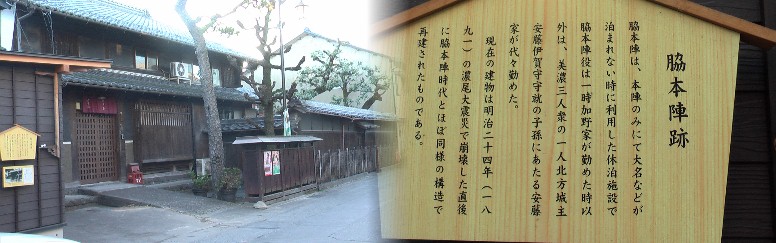 脇本陣跡
脇本陣は、本陣のみにて大名などが
泊まれない時に利用した休泊施設で
脇本陣役は一時加野家が勤めた時以
外は、美濃三人衆の一人北方城主
安藤伊賀守守就の子孫にあたる安藤
家が代々勤めた。
現在の建物は明治二十四年（一八
九一）の濃尾大震災で崩壊した直後
に脇本陣時代とほぼ同様の構造で
再建されたものである。